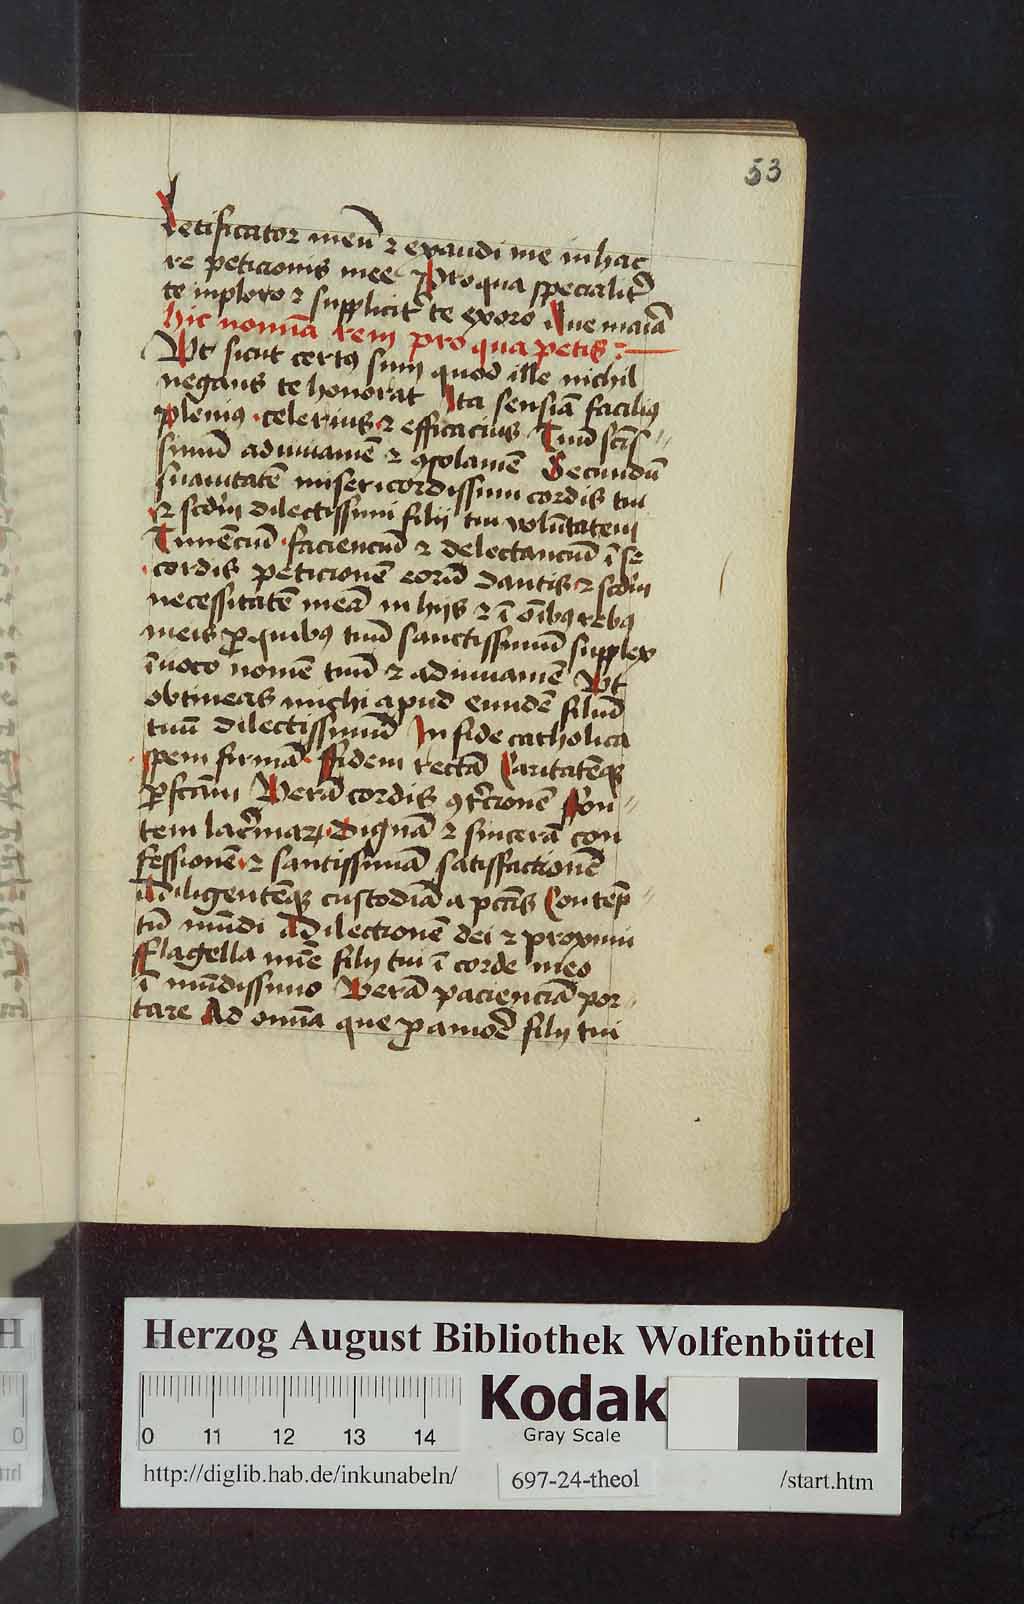 53
Letificator meū ⁊ exaudi me in hac
re peticionis mee Pro qua specialit̄
te inploro ⁊ supplicit̄ te exoro Aue maīa
hic nomīa rem pro qua petis :
Ut sicut certꝯ sum quod ille nichil
negans te honorat Ita senciā facilius
plenius celerius ⁊ efficacius Tuū scīs
simū adiuuamē ⁊ ꝯsolamē Secundū
suauitatē misericordissimi cordis tui
⁊ scdm̄ dilectissimi filij tui volūtatem
Timēciū faciencū ⁊ delectanciū ī se
cordis peticionē eorū dantis ⁊ scdm̄
necessitatē meā in hijs ⁊ ī oībus rebꝯ
meis ꝓ quibus tuū sanctissimū supplex
īuoco nomē tuū ⁊ adiuuamē Ut
obtineas michi apud eundē filiū
tuū dilectissimū In fide catholica
spem firmā ffidem rectā Caritatēqꝫ
ꝑfctām Verā cordis ꝯtͥcionē Fon
tem lacͥmaꝝ Dignā ⁊ sincerā con
fessionē ⁊ santissimā satisfactionē
Diligentēqꝫ custodiā a pctīs Contēp
tū mūdi Dilectionē dei ⁊ proximi
Flagella mīe filij tui ī corde meo
ī mūdissimo Verā pacienciā por
tare Ad omīa que ꝑ amorē filij tui
Herzog August Bibliothek Wolfenbüttel
0 11 12 13 14
Kodak
Gray Scale
http://diglib.hab.de/inkunabeln/ 697-24-theol /start.htm